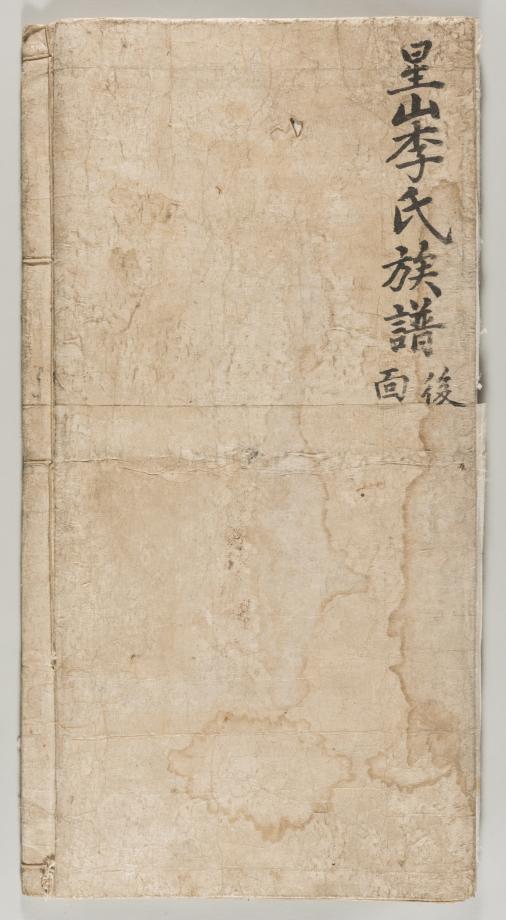 星山李氏族譜
後面